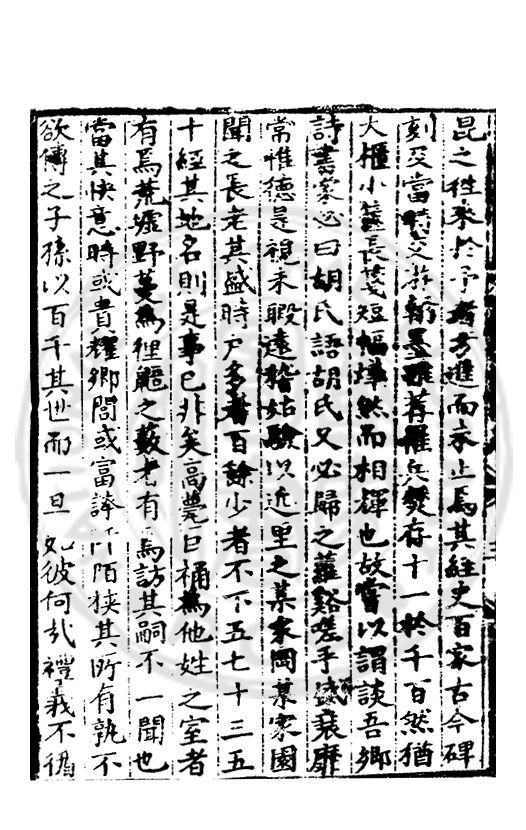 昆之往來於予者方進而未止焉其經史百家古今碑
刻及當時交游翰墨雖荐罹兵燹存十一於千百然猶
大櫃小簏長箋短幅燁然而相輝也故嘗以謂談吾鄉
詩書家必曰胡氏語胡氏又必歸之蘿谿嗟乎盛衰靡
常惟德是視未暇遠稽姑驗以近里之某家岡某家園
聞之長老其盛時戶多者百餘少者不下五七十三五
十經其地名則是事已非矣高甍巨桷為他姓之室者
有焉荒墟野蔓為狸鼯之藪者有焉訪其嗣不一聞也
當其快意時或貴耀鄉閭或富誇阡陌狹其所有孰不
欲傳之子孫以百千其世而一旦如彼何哉禮義不循